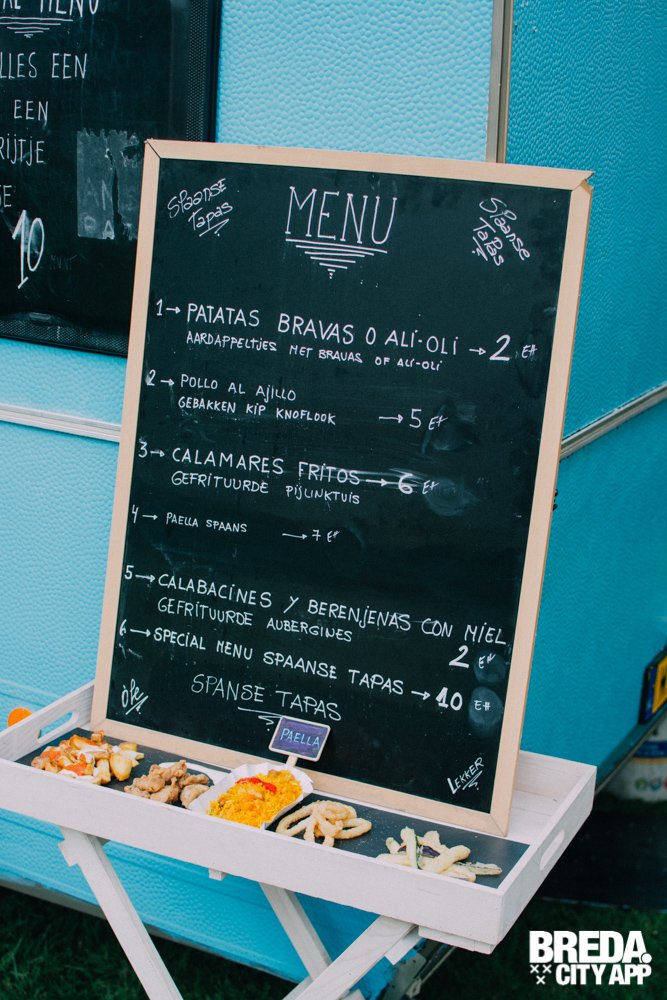 MENU
LLES EEN
EEN
RIJTJE
10
MUNT
SPAANSE
TAPAS
MENU
SPAANSE
TAPAS
1→ PATATAS BRAVAS O ALÍ-OLÍ → 2 E#
AARDAPPELTJES MET BRAVAS OF ALÍ-OLÍ
2→ POLLO AL AJILLO
GEBAKKEN KIP KNOFLOOK → 5 E#
3→ CALAMARES FRITOS → 6 E#
GEFRITUURDE PIJLINKTUIS
4→ PAELLA SPAANS → 7 E#
5→ CALABACINES Y BERENJENAS CON MIEL
GEFRITUURDE AUBERGINES 2 E#
6→ SPECIAL MENU SPAANSE TAPAS → 10 E#
SPANSE TAPAS
Olé
LEKKER
PAELLA
BREDA.
CITY APP